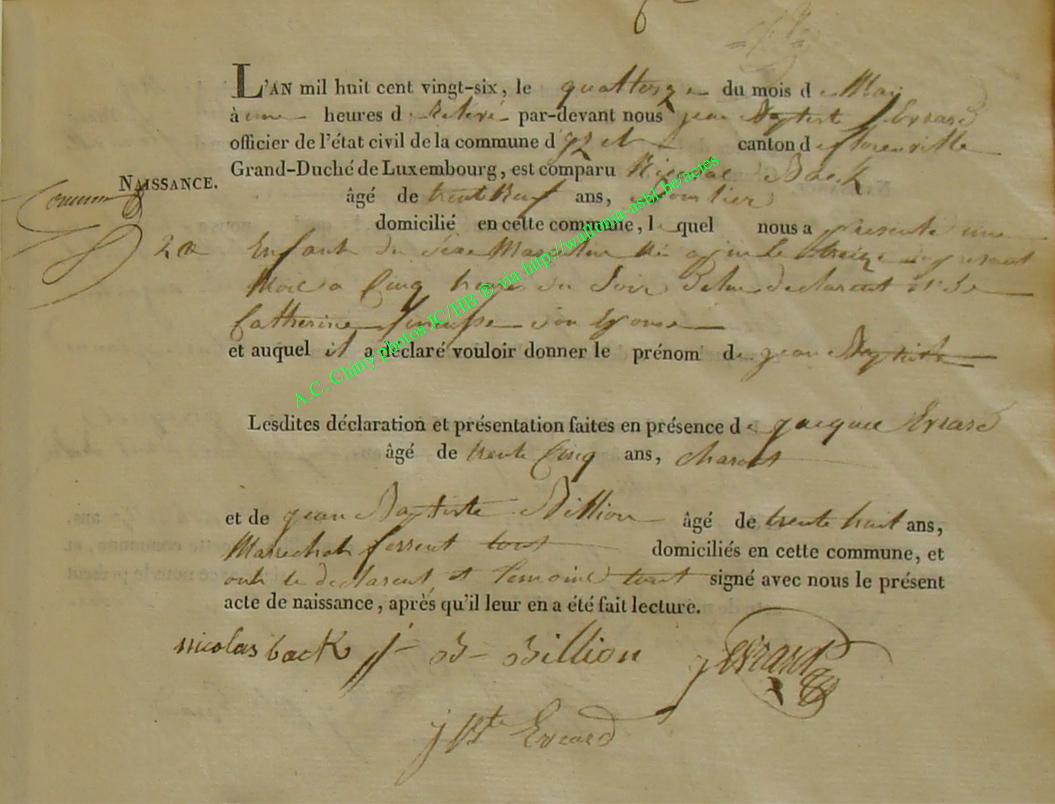 L'AN mil huit cent vingt-six, le quattorze du mois de May
à une heures de relevé par-devant nous jean Baptiste Evrard
officier de l'état civil de la commune d'Izel canton de florenville
Grand-Duché de Luxembourg, est comparu Nicolas Back
NAISSANCE.
âgé de trente neuf ans,
domicilié en cette commune, lequel nous a presenté une
2
Enfant du Sexe Masculin Né le treize present
Mois a Cinq heures du Soir de lui declarent et de
Catherine son Epouse
et auquel il a déclaré vouloir donner le prénom de jean Baptiste
Lesdites déclaration et présentation faites en présence de jacque Evrard
âgé de trente Cinq ans, charon
et de jean Baptiste Billion âgé de trente huit ans,
Marechal ferrent tous domiciliés en cette commune, et
onts le declarent et temoins tout signé avec nous le présent
acte de naissance, après qu'il leur en a été fait lecture.
nicolas back J-B-Billion J Evrard
j Bte Evrard
A.C. Chiny Photos JC/HB ® via http://wallonia-asbl.be/actes